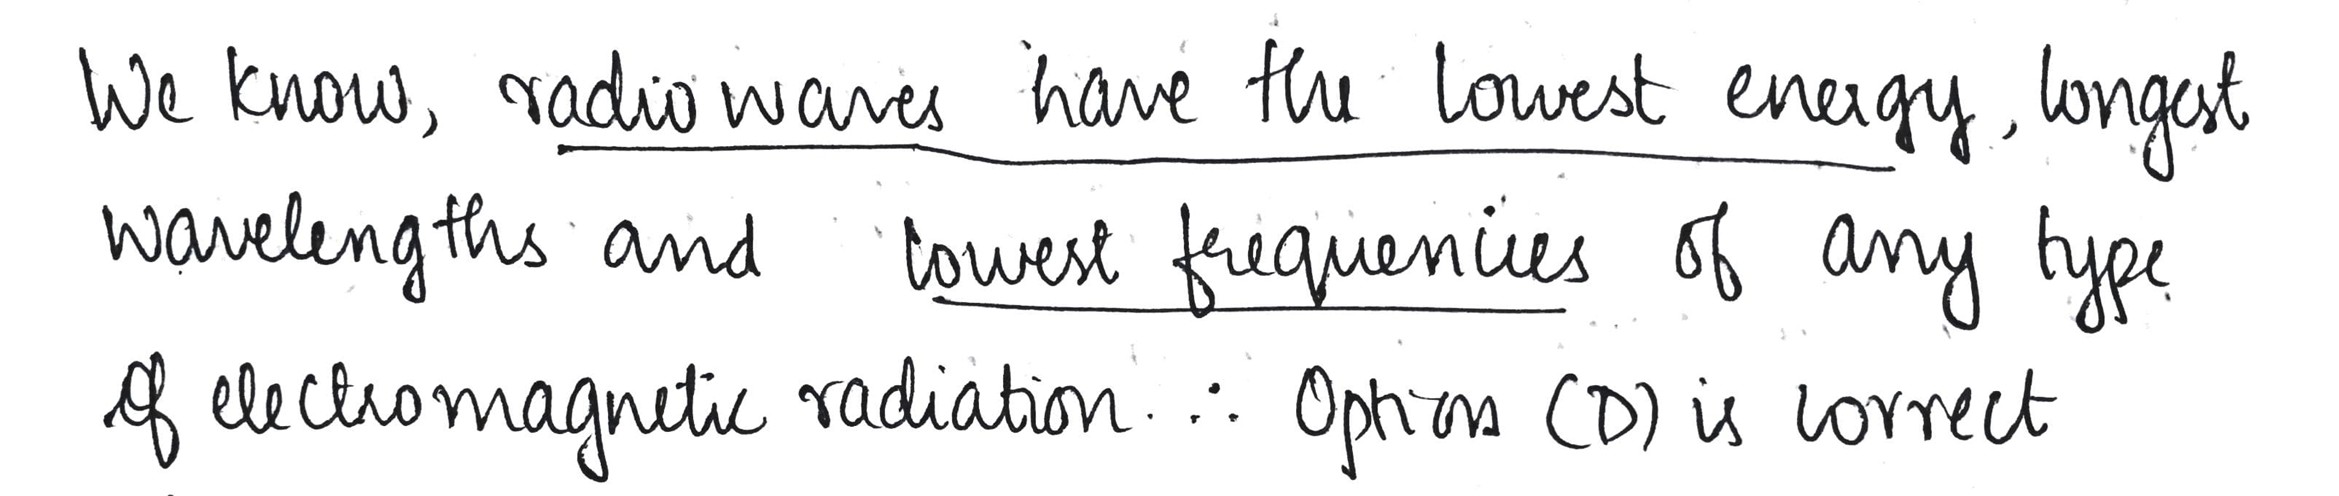 We know, radio waves have the lowest energy, longest
wavelengths and lowest frequencies of any type
of electromagnetic radiation. ∴ Option (D) is correct